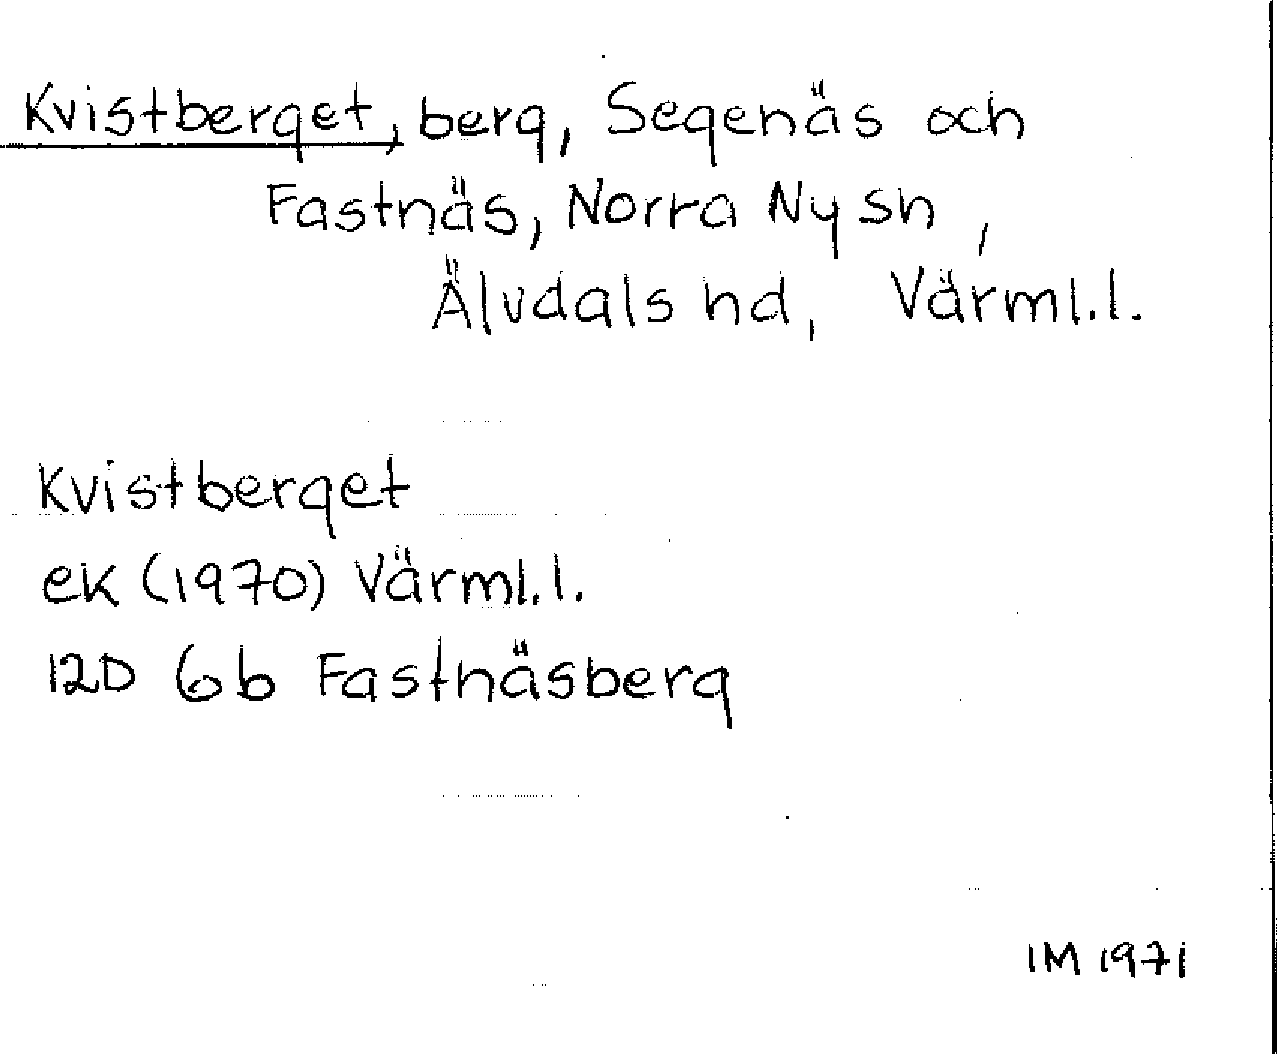 Kvistberget, berg, Segenäs och
Fastnäs, Norra Ny sn,
Älvdals hd, Värml.l.
Kvistberget
ek (1970) Värml.l.
12D 6b Fastnäsberg
IM 1971